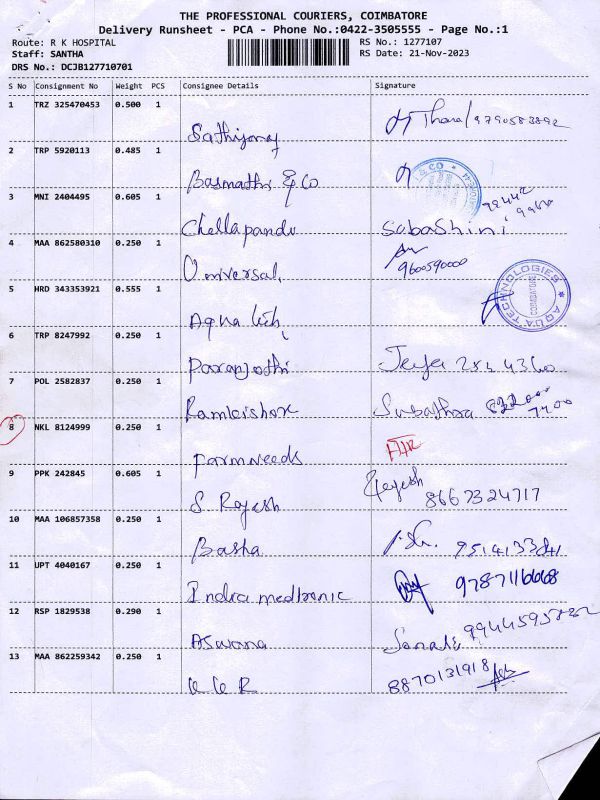 THE PROFESSIONAL COURIERS, COIMBATORE
Delivery Runsheet - PCA - Phone No.:0422-3505555 - Page No.:1
Route: R K HOSPITAL RS No.: 1277107
Staff: SANTHA RS Date: 21-Nov-2023
DRS No.: DCJB127710701
S No Consignment No Weight PCS Consignee Details Signature
1 TRZ 325470453 0.500 1
Thara / 9790583892
2 TRP 5920113 0.485 1
Basmathi & Co
& CO
3 MNI 2404495 0.605 1
Chellapandu Subashini
4 MAA 862580310 0.250 1
Universal 9600590000
5 HRD 343353921 0.555 1
Aqua tech
AQUA TECHNOLOGIES
COIMBATORE
6 TRP 8247992 0.250 1
Paranjothi 252 4360
7 POL 2582837 0.250 1
Ramkishore Subathra
8 NKL 8124999 0.250 1
Farmneeds
9 PPK 242845 0.605 1
S Rajesh Rajesh 8667324717
10 MAA 106857358 0.250 1
Basha
11 UPT 4040167 0.250 1
Indra medtronic 9787116668
12 RSP 1829538 0.290 1
Aswana
13 MAA 862259342 0.250 1
8870131918